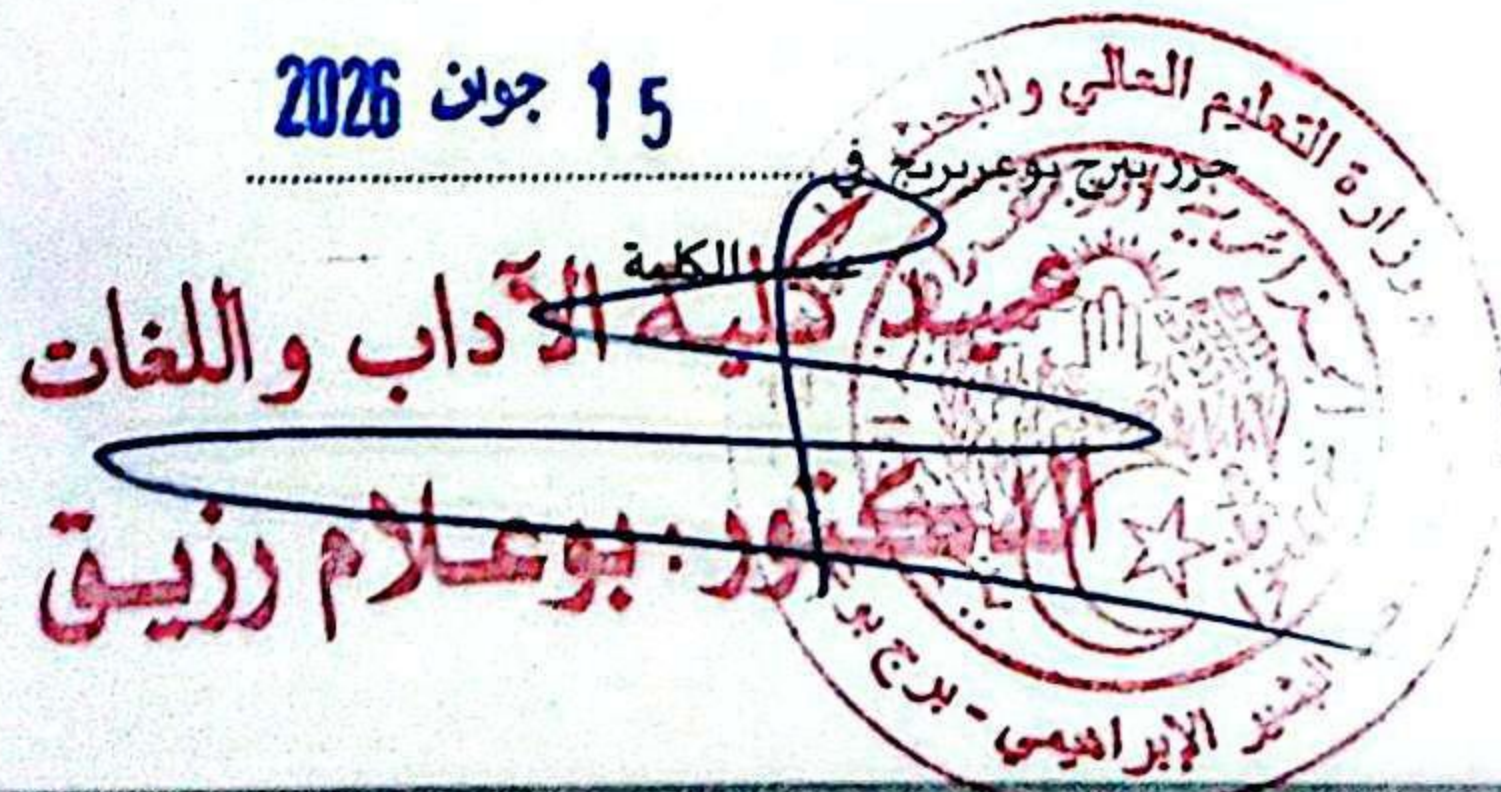 15 جوان 2026
حرر ببرج بوعريريج في
عميد الكلية
عميد كلية الآداب واللغات
الدكتور. بوعلام رزيق
وزارة التعليم العالي والبحث
الإبراهيمي - برج بو